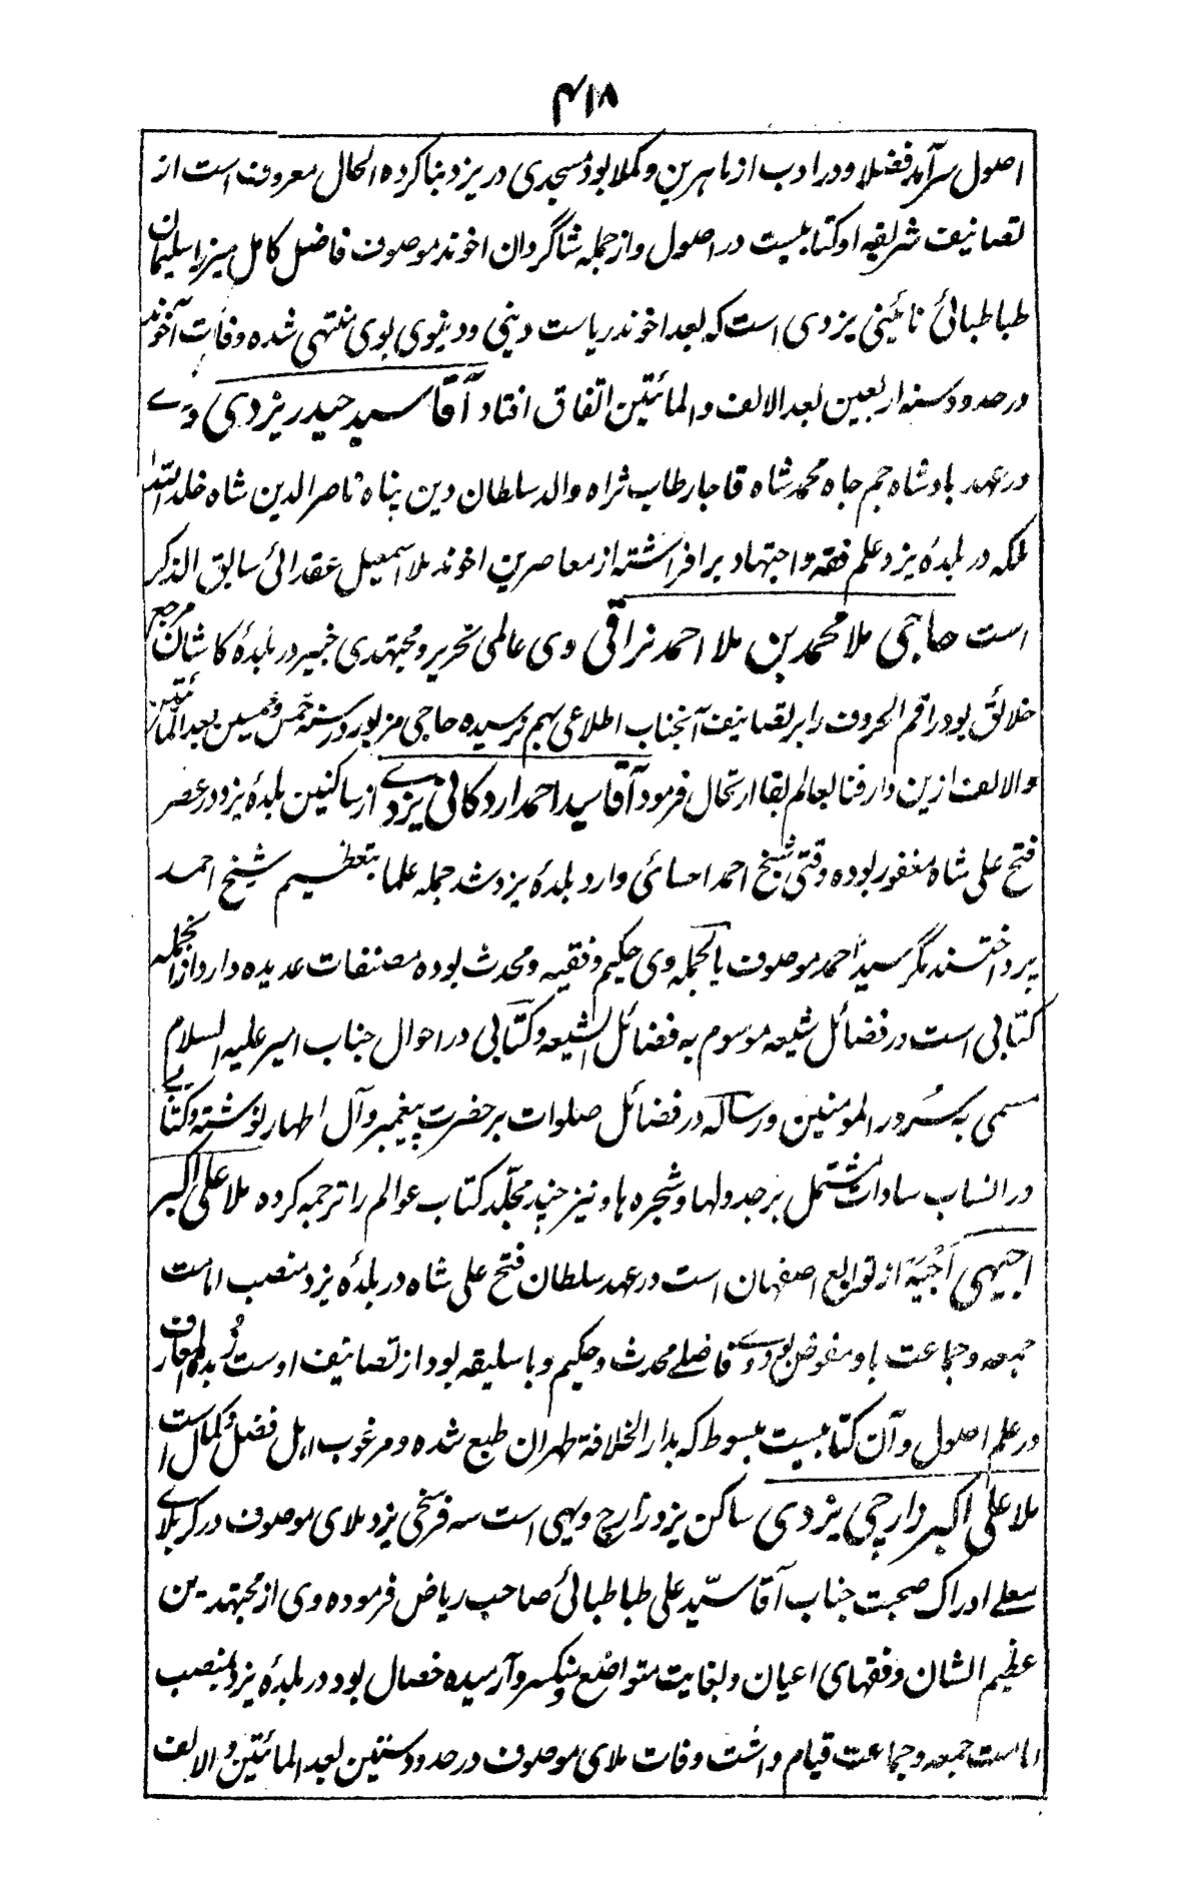 ۴۱۸
اصول سرآمد فضلا و در ادب از ماهرین و کملا بود مسجدی در یزد بنا کرده الحال معروف است از
تصانیف شریفه او کتابیست در اصول و از جمله شاگردان اخوند موصوف فاضل کامل میرزا سلیمان
طباطبائی نائینی یزدی است که بعد اخوند ریاست دینی و دنیوی بوی منتهی شده وفات آخوند
در حدود سنه اربعین بعد الالف و المائتین اتفاق افتاد آقا سید حیدر یزدی وے
در عهد بادشاه جم جاه محمد شاه قاجار طاب ثراه والد سلطان دین پناه ناصر الدین شاه خلد الله
ملکه در بلدهٔ یزد علم فقه و اجتهاد برافراشته از معاصرین اخوند ملا اسمعیل عقدائی سابق الذکر
است حاجی ملا محمد بن ملا احمد نراقی وی عالمی نحریر و مجتهدی خبیر در بلدهٔ کاشان مرجع
خلائق بود راقم الحروف را بر تصانیف آنجناب اطلاعی بهم نرسیده حاجی مزبور در سنه خمس و خمسین بعد المائتین
والالف ازین دار فنا بعالم بقا ارتحال فرمود آقا سید احمد اردکانی یزدے از ساکنین بلدهٔ یزد در عصر
فتح علی شاه مغفور بوده وقتی شیخ احمد احسائی وارد بلدهٔ یزد شد جمله علما بتعظیم شیخ احمد
پرداختند مگر سید احمد موصوف بالجمله وی حکیم و فقیه و محدث بوده مصنفات عدیده دارد ازانجمله
کتابی است در فضائل شیعه موسوم به فضائل الشیعه و کتابی در احوال جناب امیر علیه السلام
مسمی به سُرور المومنین و رساله در فضائل صلوات بر حضرت پیغمبر و آل اطهار نوشته و کتابے
در انساب سادات مشتمل بر جدولها و شجره ها و نیز چند مجلّد کتاب عوالم را ترجمه کرده ملا علی اکبر
اجیهی اَجْیَه از توابع اصفهان است در عهد سلطان فتح علی شاه در بلدهٔ یزد منصب امامت
جمعه و جماعت باو مفوض بود وے فاضلے محدث و حکیم و با سلیقه بود از تصانیف اوست زُبدة المعارف
در علم اصول و آن کتابیست مبسوط که بدار الخلافة طهران طبع شده و مرغوب اهل فضل و کمال است
ملا علی اکبر زارچی یزدی ساکن یزد زارچ دیهی است سه فرسخی یزد ملای موصوف در کربلاے
معلے ادراک صحبت جناب آقا سیّد علی طباطبائی صاحب ریاض فرموده وی از مجتهدین
عظیم الشان و فقهای اعیان و بغایت متواضع و منکسر و آرمیده خصال بود در بلدهٔ یزد بمنصب
امامت جمعه و جماعت قیام داشت وفات ملای موصوف در حدود ستین بعد المائتین و الالف